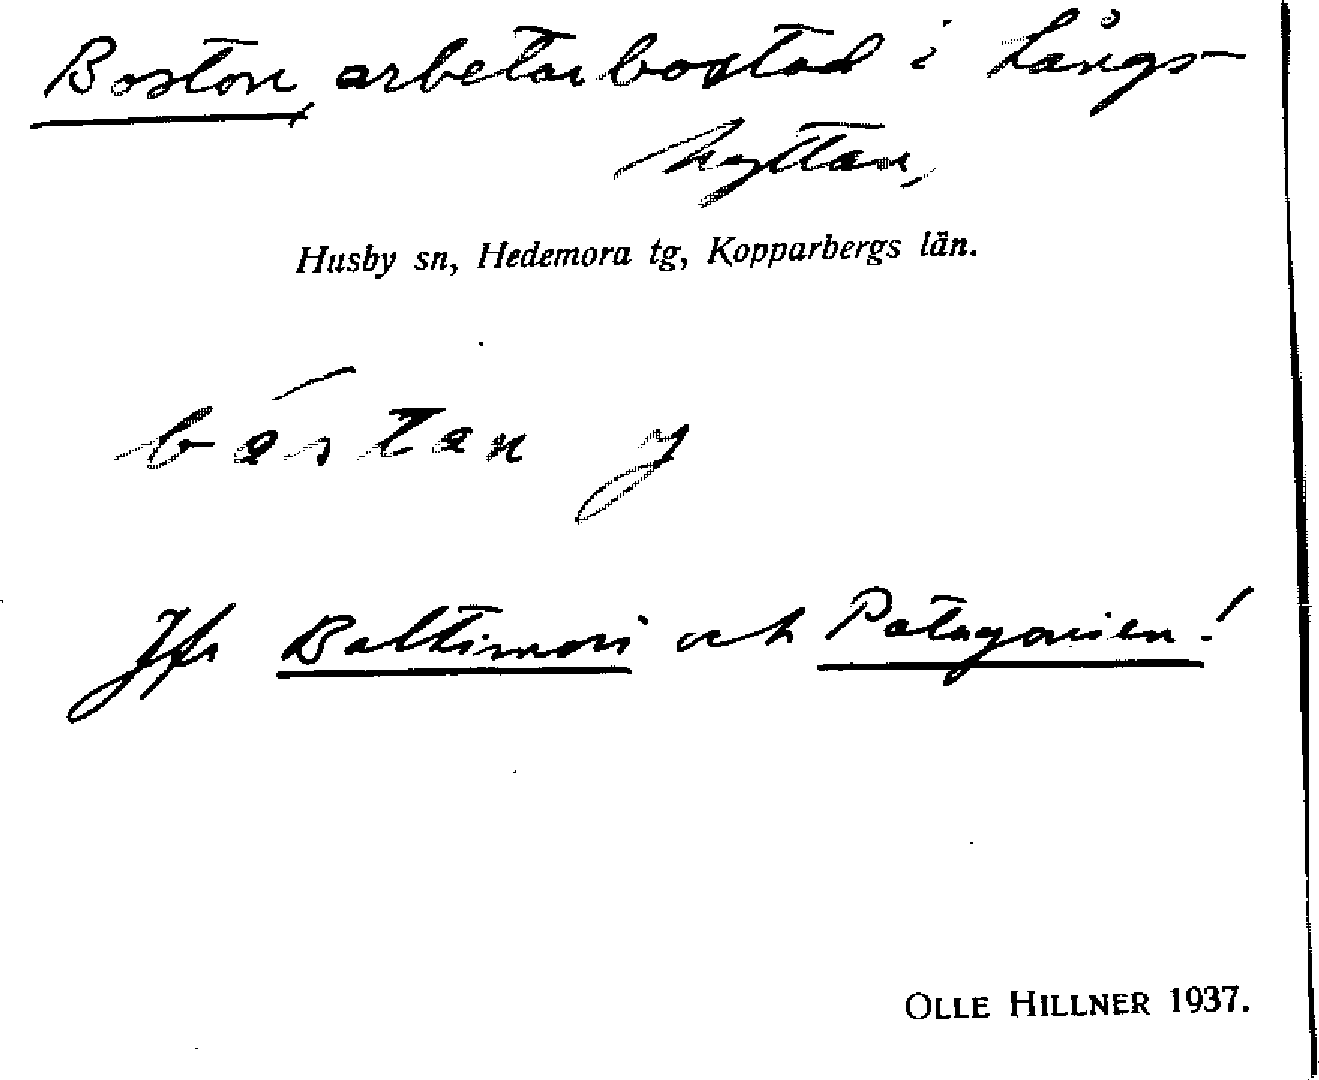 Boston, arbetarbostad i Långs-
hyttan,
Husby sn, Hedemora tg, Kopparbergs län.
Jfr Baltimori och Patagonien!
OLLE HILLNER 1937.